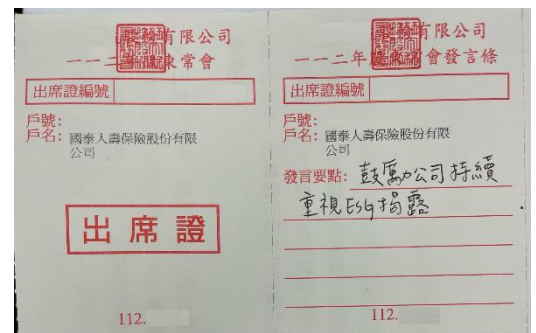 有限公司
一一二
東常會
出席證編號
戶號：
戶名： 國泰人壽保險股份有限
公司
出席證
112.
有限公司
一一二年
會發言條
出席證編號
戶號：
戶名： 國泰人壽保險股份有限
公司
發言要點： 鼓勵公司持續
重視ESG揭露
112.